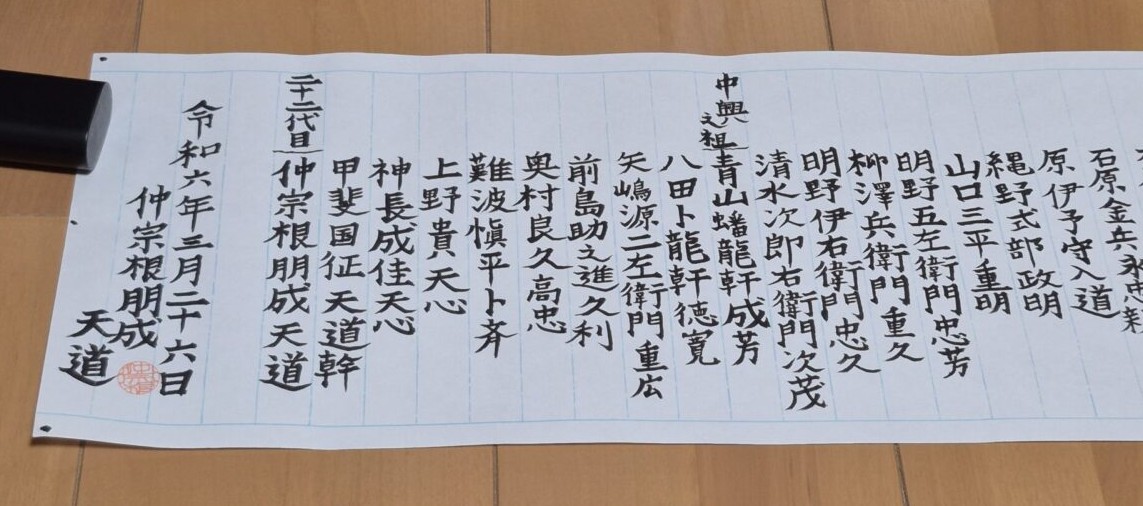 石原金兵
原伊予守入道
縄野式部政明
山口三平重明
明野五左衛門忠芳
柳澤兵衛門重久
明野伊右衛門忠久
清水次郎右衛門次茂
中興之祖青山蟠龍軒成芳
八田卜龍軒徳寛
矢嶋源二左衛門重広
前島助之進久利
奥村良久高忠
難波慎平卜斉
上野貴天心
神長成佳天心
甲斐国征天道幹
二十二代目仲宗根朋成天道
令和六年三月二十六日
仲宗根朋成
天道